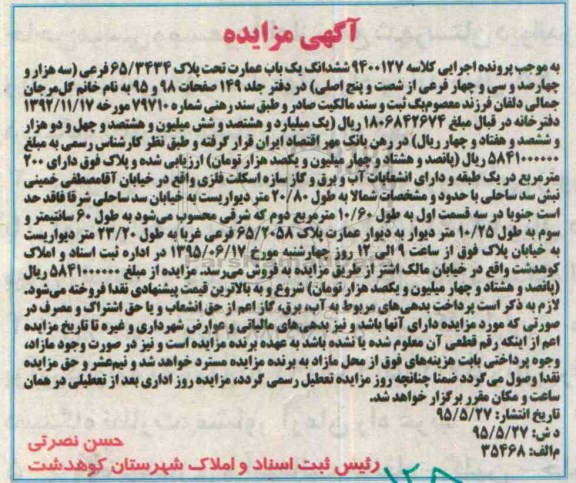 آگهی مزایده
به موجب پرونده اجرایی کلاسه ۹۴۰۰۱۲۷ ششدانگ یک باب عمارت تحت پلاک ۶۵/۳۴۳۴ فرعی (سه هزار و
چهارصد و سی و چهار فرعی از شصت و پنج اصلی) در دفتر جلد ۱۴۹ صفحات ۹۸ و ۹۵ به نام خانم گل‌مرجان
جمالی دلفان فرزند معصوم‌بگ ثبت و سند مالکیت صادر و طبق سند رهنی شماره ۷۹۷۱۰ مورخه ۱۳۹۲/۱۱/۱۷
دفترخانه در قبال مبلغ ۱۸۰۶۸۴۲۶۷۴ ریال (یک میلیارد و هشتصد و شش میلیون و هشتصد و چهل و دو هزار
و ششصد و هفتاد و چهار ریال) در رهن بانک مهر اقتصاد ایران قرار گرفته و طبق نظر کارشناس رسمی به مبلغ
۵۸۴۱۰۰۰۰۰۰ ریال (پانصد و هشتاد و چهار میلیون و یکصد هزار تومان) ارزیابی شده و پلاک فوق دارای ۲۰۰
مترمربع در یک طبقه و دارای انشعابات آب و برق و گاز سازه اسکلت فلزی واقع در خیابان آقامصطفی خمینی
نبش سد ساحلی با حدود و مشخصات شمالا به طول ۲۰/۸۰ متر دیواریست به خیابان سد ساحلی شرقا فاقد حد
است جنوبا در سه قسمت اول به طول ۱۰/۶۰ مترمربع دوم که شرقی محسوب می‌شود به طول ۶۰ سانتیمتر و
سوم به طول ۱۰/۲۵ متر دیوار به دیوار عمارت پلاک ۶۵/۲۰۵۸ فرعی غربا به طول ۲۳/۲۰ متر دیواریست
به خیابان پلاک فوق از ساعت ۹ الی ۱۲ روز چهارشنبه مورخ ۱۳۹۵/۰۶/۱۷ در اداره ثبت اسناد و املاک
کوهدشت واقع در خیابان مالک اشتر از طریق مزایده به فروش می‌رسد. مزایده از مبلغ ۵۸۴۱۰۰۰۰۰۰ ریال
(پانصد و هشتاد و چهار میلیون و یکصد هزار تومان) شروع و به بالاترین قیمت پیشنهادی نقدا فروخته می‌شود.
لازم به ذکر است پرداخت بدهی‌های مربوط به آب، برق، گاز اعم از حق انشعاب و یا حق اشتراک و مصرف در
صورتی که مورد مزایده دارای آنها باشد و نیز بدهی‌های مالیاتی و عوارض شهرداری و غیره تا تاریخ مزایده
اعم از اینکه رقم قطعی آن معلوم شده یا نشده باشد به عهده برنده مزایده است و نیز در صورت وجود مازاد،
وجوه پرداختی بابت هزینه‌های فوق از محل مازاد به برنده مزایده مسترد خواهد شد و نیم‌عشر و حق مزایده
نقدا وصول می‌گردد ضمنا چنانچه روز مزایده تعطیل رسمی گردد، مزایده روز اداری بعد از تعطیلی در همان
ساعت و مکان مقرر برگزار خواهد شد.
تاریخ انتشار: ۹۵/۵/۲۷
د ش: ۹۵/۵/۲۷
م‌الف: ۳۵۴۶۸
حسن نصرتی
رئیس ثبت اسناد و املاک شهرستان کوهدشت
۱۲۵